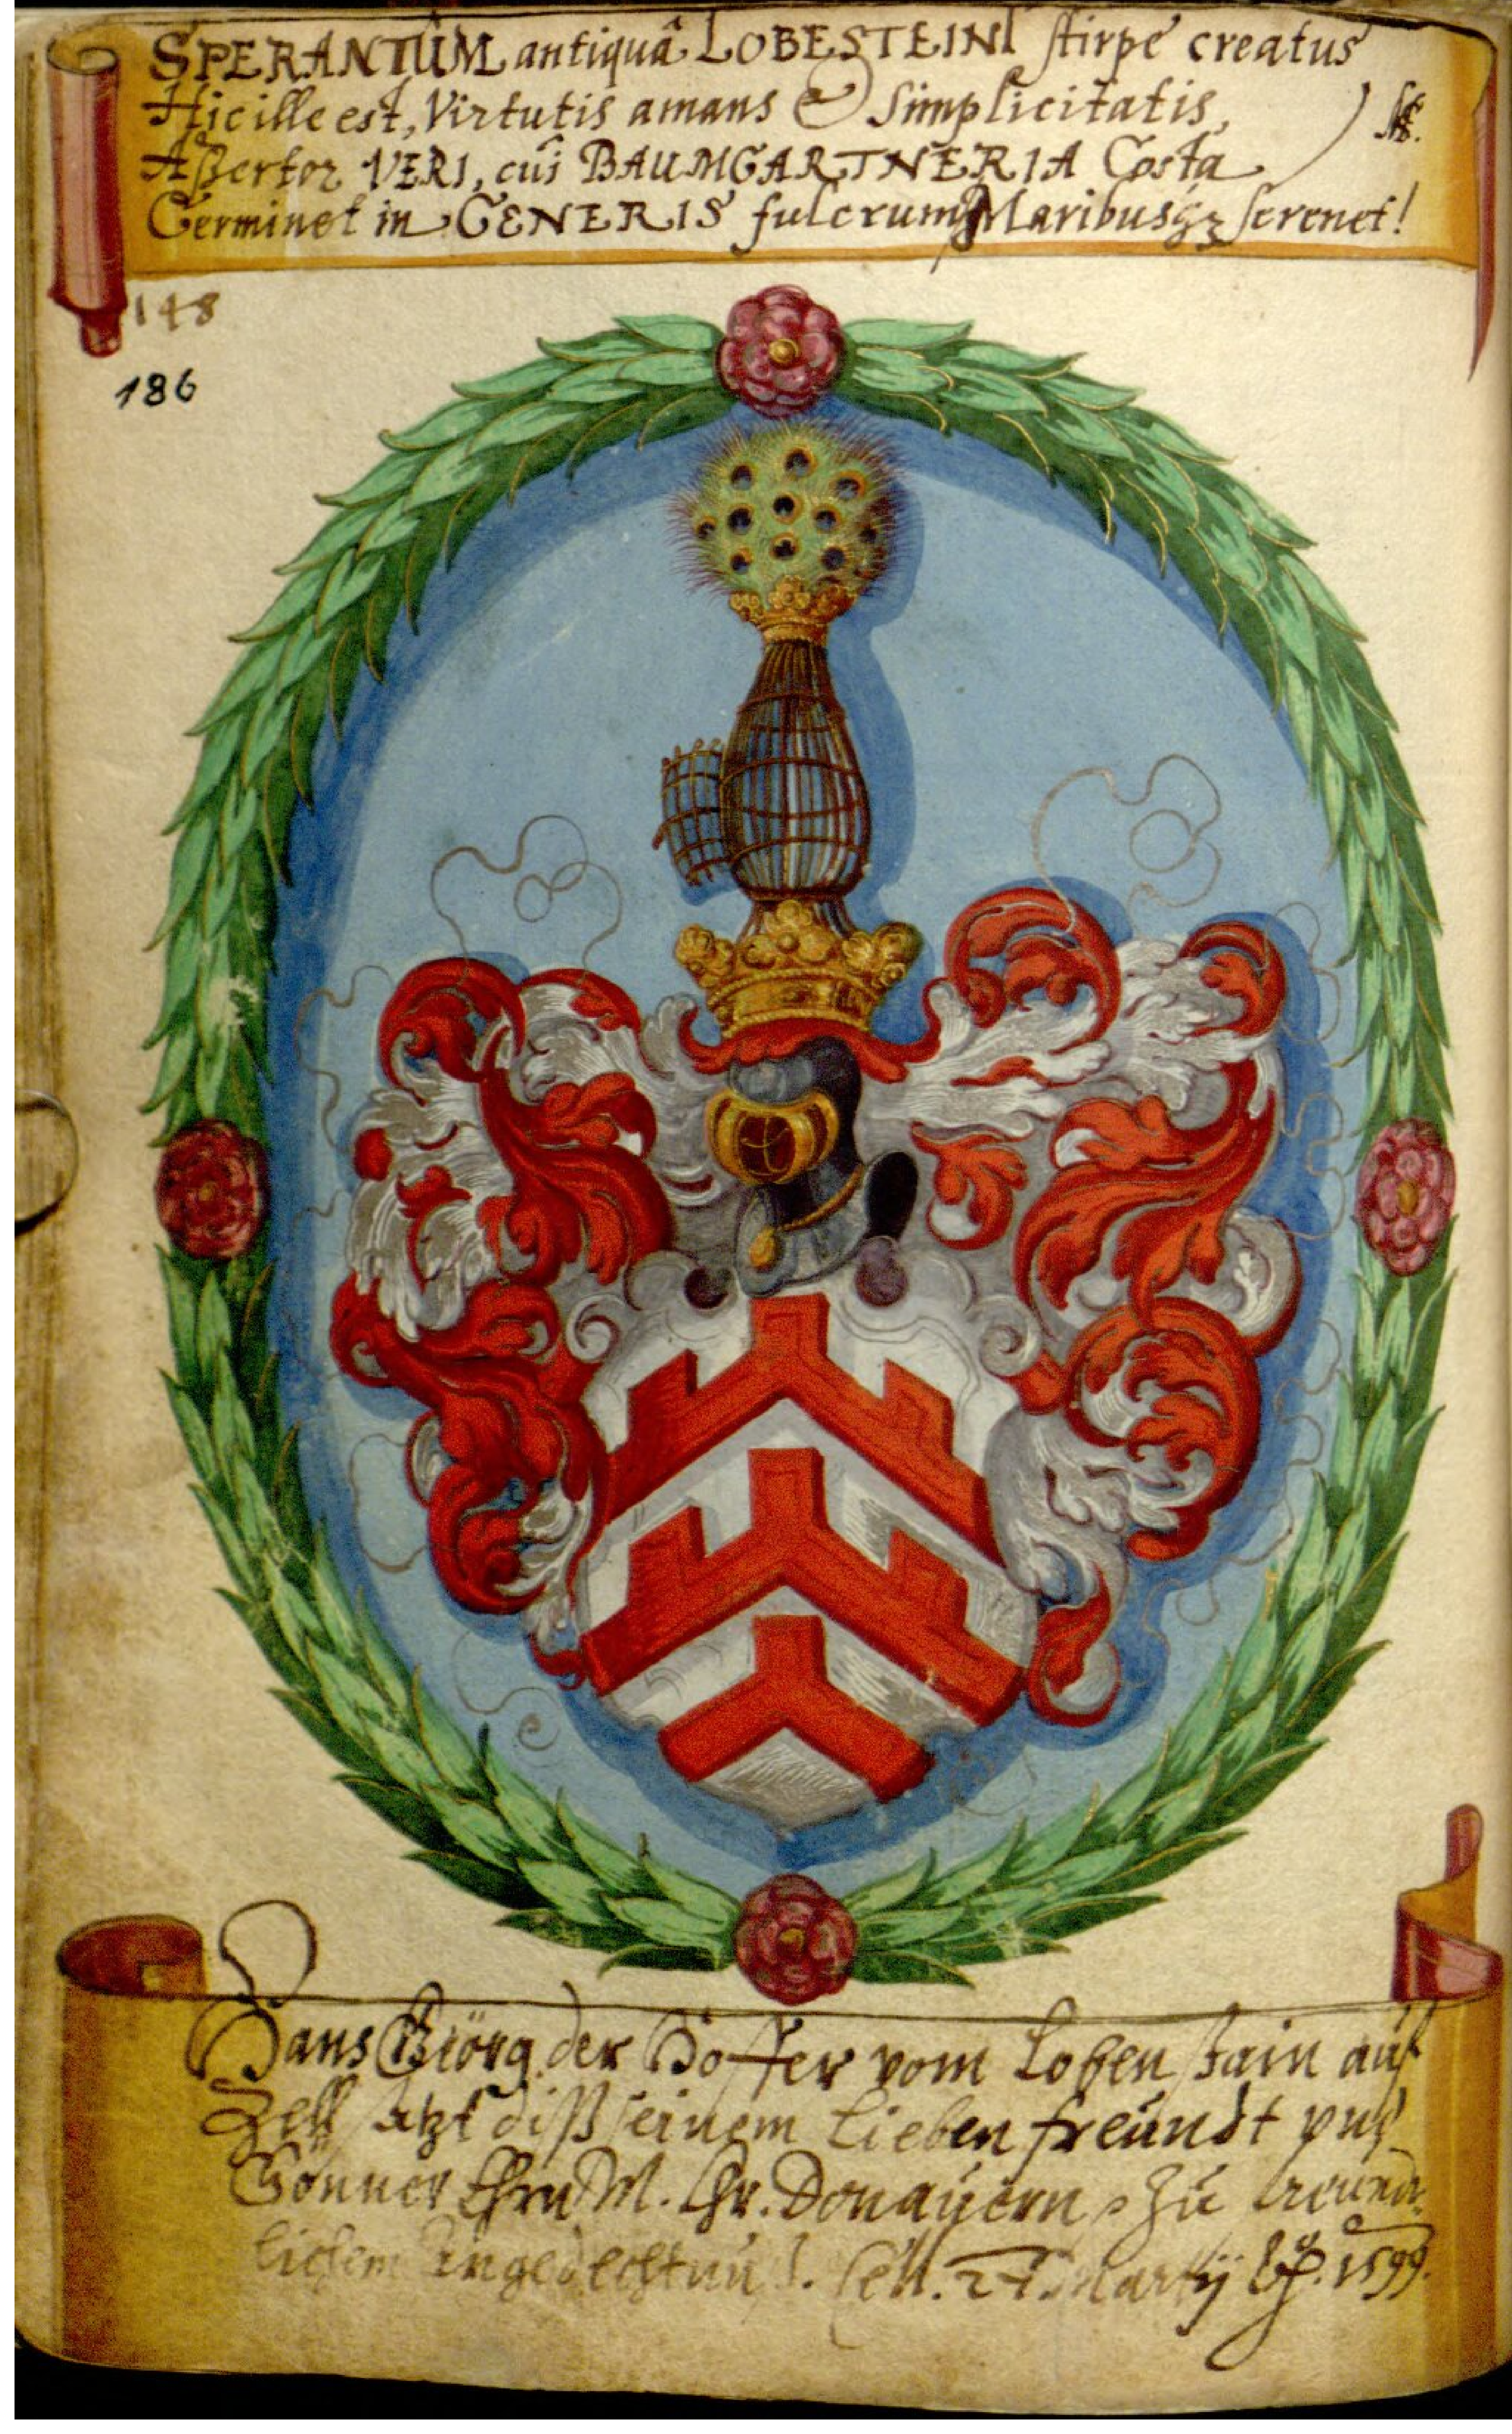 SPERANTÛM antiquâ LOBESTEINI stirpe creatus
Hic ille est, Virtutis amans & Simplicitatis,
Assertor VERI, cui BAUMGARTNERIA Costa
Germinet in GENERIS fulcrum Maribusqꝫ serenet!
148
186
Hans Giörg der Hoffer vom Lobenstain auf
Zell setzt diß seinem Lieben freündt vnd
Gönner Ehrn M. Chr. Donauern, zu
lichem Angedechtnuß. Cell. 27. Martij 1599.